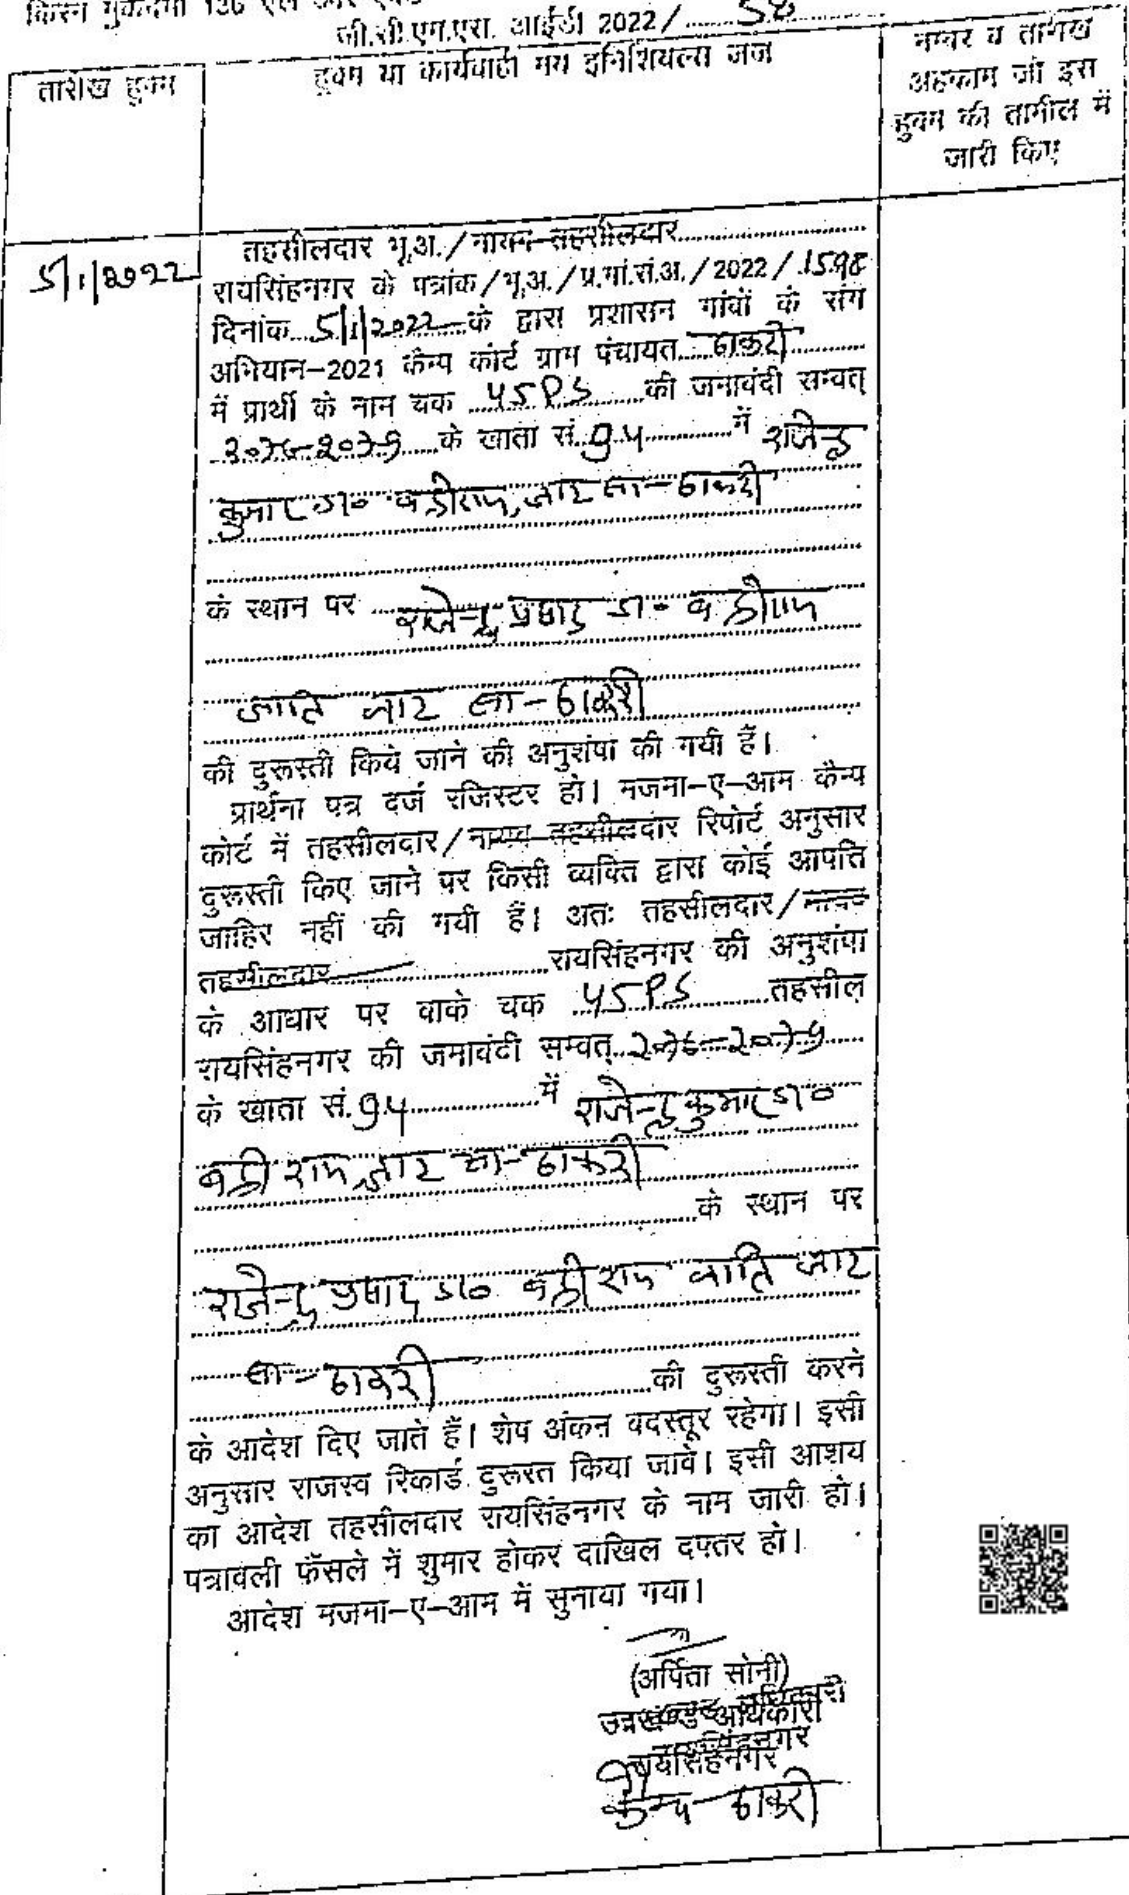 किस्म मुकदमा 136 एल आर एक्ट
जी.सी.एम.एस. आईडी 2022/........58
तारीख हुक्म
हुक्म या कार्यवाही मय इनिशियल्स जज
नम्बर व तारीख
अहकाम जो इस
हुक्म की तामील में
जारी किए
5/1/2022
तहसीलदार भू.अ./नायब तहसीलदार..............
रायसिंहनगर के पत्रांक/भू.अ./प्र.गां.सं.अ./2022/.1598
दिनांक..5/1/2022..के द्वारा प्रशासन गांवों के संग
अभियान-2021 कैम्प कोर्ट ग्राम पंचायत....ठाकरी..........
में प्रार्थी के नाम चक ..45PS......की जमाबंदी सम्वत्
२०७६-२०७९....के खाता सं..94..............में राजेन्द्र
कुमार पु० बद्रीराम, जाट सा-ठाकरी
के स्थान पर ...राजेन्द्र प्रसाद पु० बद्रीराम
जाति जाट सा-ठाकरी
की दुरूस्ती किये जाने की अनुशंषा की गयी हैं।
प्रार्थना पत्र दर्ज रजिस्टर हो। मजमा-ए-आम कैम्प
कोर्ट में तहसीलदार/नायब तहसीलदार रिपोर्ट अनुसार
दुरूस्ती किए जाने पर किसी व्यक्ति द्वारा कोई आपत्ति
जाहिर नहीं की गयी हैं। अतः तहसीलदार/नायब
तहसीलदार......................रायसिंहनगर की अनुशंषा
के आधार पर वाके चक ..45PS..........तहसील
रायसिंहनगर की जमाबंदी सम्वत्..२०७६-२०७९....
के खाता सं.94..................में राजेन्द्र कुमार पु०
बद्रीराम जाट सा-ठाकरी
..............................के स्थान पर
राजेन्द्र प्रसाद पु० बद्रीराम जाति जाट
सा-ठाकरी ..................की दुरूस्ती करने
के आदेश दिए जाते हैं। शेष अंकन बदस्तूर रहेगा। इसी
अनुसार राजस्व रिकार्ड दुरूस्त किया जावे। इसी आशय
का आदेश तहसीलदार रायसिंहनगर के नाम जारी हो।
पत्रावली फैंसले में शुमार होकर दाखिल दफ्तर हो।
आदेश मजमा-ए-आम में सुनाया गया।
(अर्पिता सोनी)
उपखण्ड अधिकारी
रायसिंहनगर
कैम्प-ठाकरी